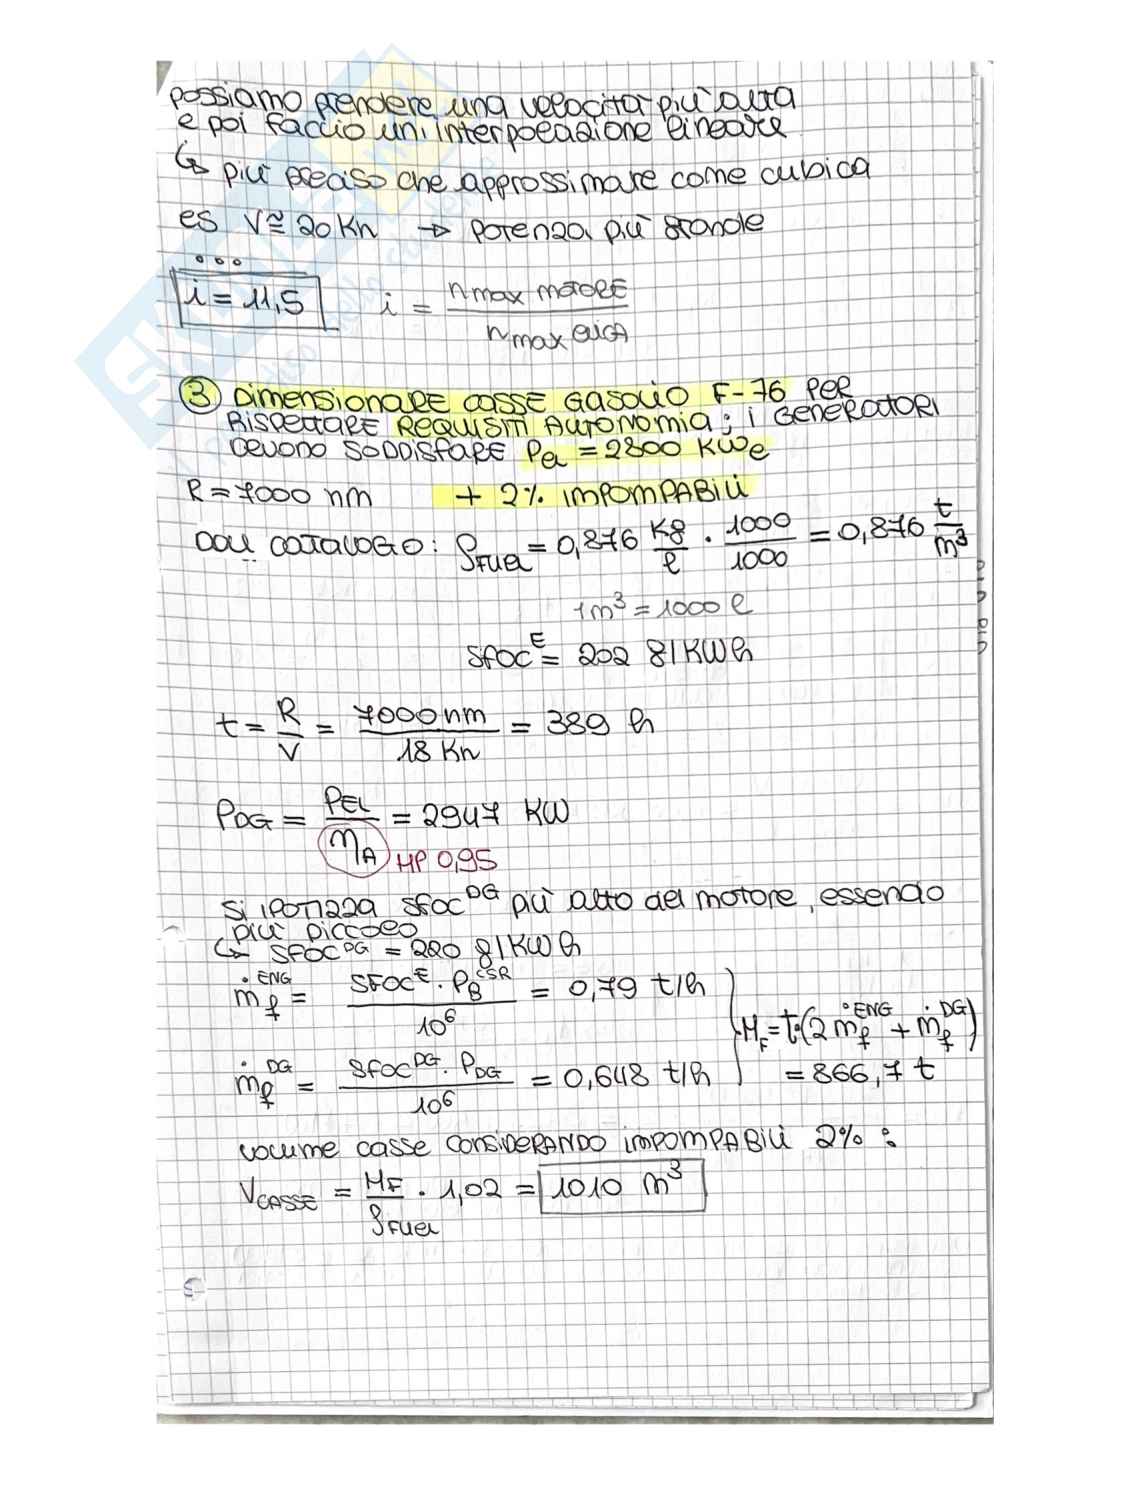 possiamo prendere una velocità più alta
e poi faccio un'interpolazione lineare
↳ più preciso che approssimare come cubica
es V≅20 Kn → potenza più grande
...
i = 11,5 i = n max MOTORE / n max ELICA
③ DIMENSIONARE CASSE GASOLIO F-76 PER
RISPETTARE REQUISITI AUTONOMIA; i GENERATORI
DEVONO SODDISFARE Pel = 2800 KWe
R = 7000 nm + 2% IMPOMPABILI
DALL CATALOGO: ρFUEL = 0,876 Kg/l · 1000/1000 = 0,876 t/m³
1m³ = 1000 l
SFOC^E = 202 g/KWh
t = R/V = 7000 nm / 18 Kn = 389 h
PDG = PEL / ηA = 2947 KW
HP 0,95
Si IPOTIZZA SFOC^DG più alto del motore, essendo
più piccolo
↳ SFOC^DG = 220 g/KWh
ṁf^ENG = SFOC^E · PB^CSR / 10⁶ = 0,79 t/h
MF = t·(2 ṁf^ENG + ṁf^DG)
ṁf^DG = SFOC^DG · PDG / 10⁶ = 0,648 t/h
= 866,7 t
volume casse CONSIDERANDO IMPOMPABILI 2% :
VCASSE = MF / ρFUEL · 1,02 = 1010 m³